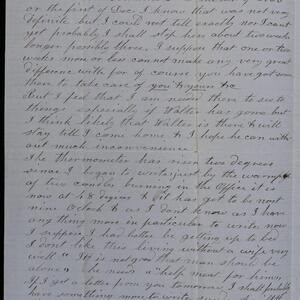 or the first of Dec I know that was not very
definite but I could not tell exactly nor I cant
yet probably I shall stop here about two weeks
longer possibly three. I suppose that one or two
weeks more or less cannot make any very great
difference with for of course you have got some
them to take care of you & yours &c
But I feel that I am needed there to see to
things especially if Walter has gone but
I think likely that Walter is there & will
stay till I come home & I hope he can with
out much inconvenience.
The thermometer has risen two degrees
since I began to write just by the warmth
of two candles burning in the Office it is
now at 48 degrees & it has got to be most
nine o'clock & as I dont know as I have
any thing more in particular to write now
I suppose I had better be getting up to bed
I dont like this living without a wife very
well "It is not good that man should be
alone" he needs a "help meet for him".
If I get a letter from you tomorrow I shall probably
have something more to write